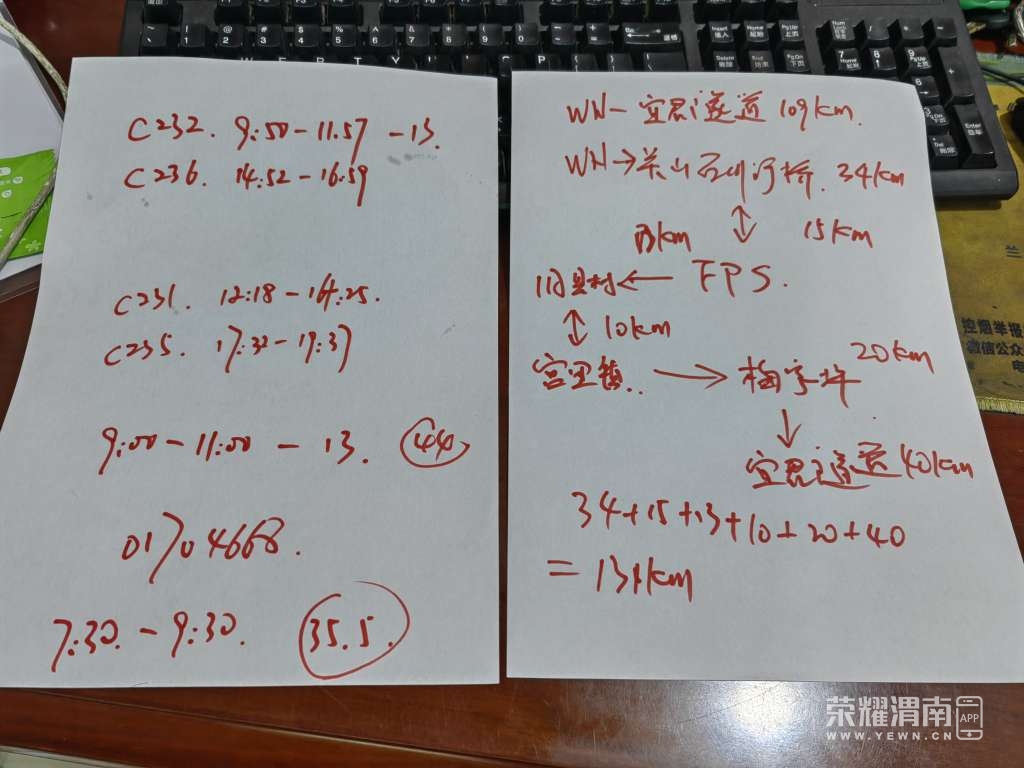 C232. 9:50-11:57 -13.
C236. 14:52-16:59
C231. 12:18-14:25.
C235. 17:32-19:37
9:00-11:00 - 13. 44
01704668.
7:30. - 9:30. 35.5.
WN-宜君隧道 109km.
WN→关山石川河桥. 34km
13km ↕ 15km
闫良村 ← FPS.
↕ 10km
宫里镇. → 梅家坪 20km
↓
宜君隧道 40km
34+15+13+10+20+40
= 131km
控烟举报
微信公众
兰
荣耀渭南 APP
WWW.YEWN.CN